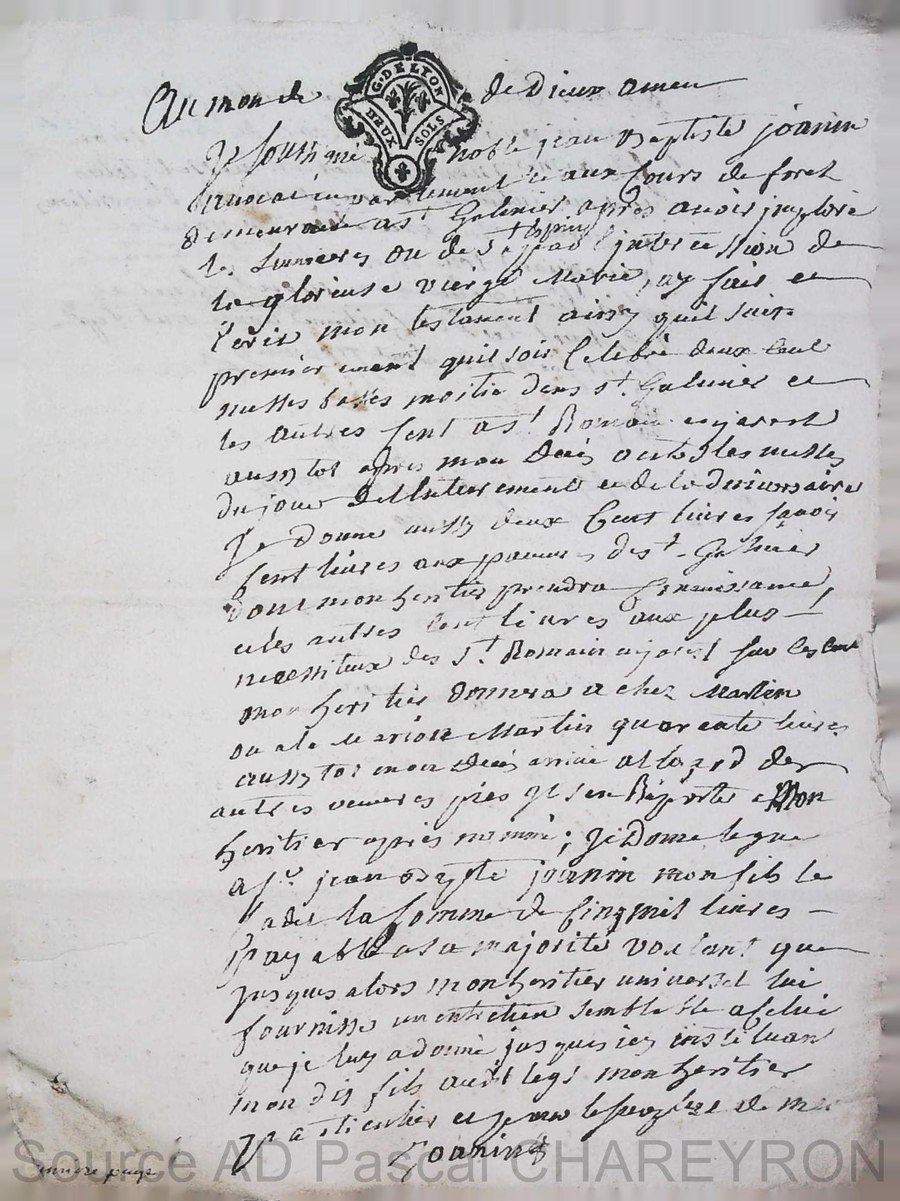 Au mon de de Dieux amen
G. DE LYON
DEUX SOLS
Je soussigné noble jean Baptiste joanin
avocat en parlement et aux Cours de foret
demeurant a st Galmier apres avoir imploré
les Lumieres du st Esprit l'intercession de
la glorieuse vierge Marie, ay fait et
écrit mon testament ainsy quil suit
premierement quil soit Celebré deux Cent
messes basses moitié dans st. Galmier et
les autres Cent a st. Romain en jarest
aussytot apres mon décés outre les messes
du jour de l'enterrement et de
Je donne aussy deux Cent livres savoir
Cent livres aux pauvres de st. Galmier
dont mon heritier prendra Connaissance
et les autres Cent livres aux plus
necessiteux de St. Romain en jarest sur les Cent
mon heritier donnera a chez Martin
ou a la Marion Martin quarente livres
aussytot mon décés arrivé a l'egard des
autres œuvres pies je m'en Raporte a Mon
heritier apres nommé; je donne legue
a sr. jean Bapte joanin mon fils le
cadet la somme de Cinq mil livres
Payable a sa majorité voulant que
jusques alors mon heritier universel lui
fournisse un entretien semblable a Celui
que je luy a donné jusques icy instituant
mon dit fils audit legs mon heritier
Particulier et
Joanin
premiere page
Source AD Pascal CHAREYRON